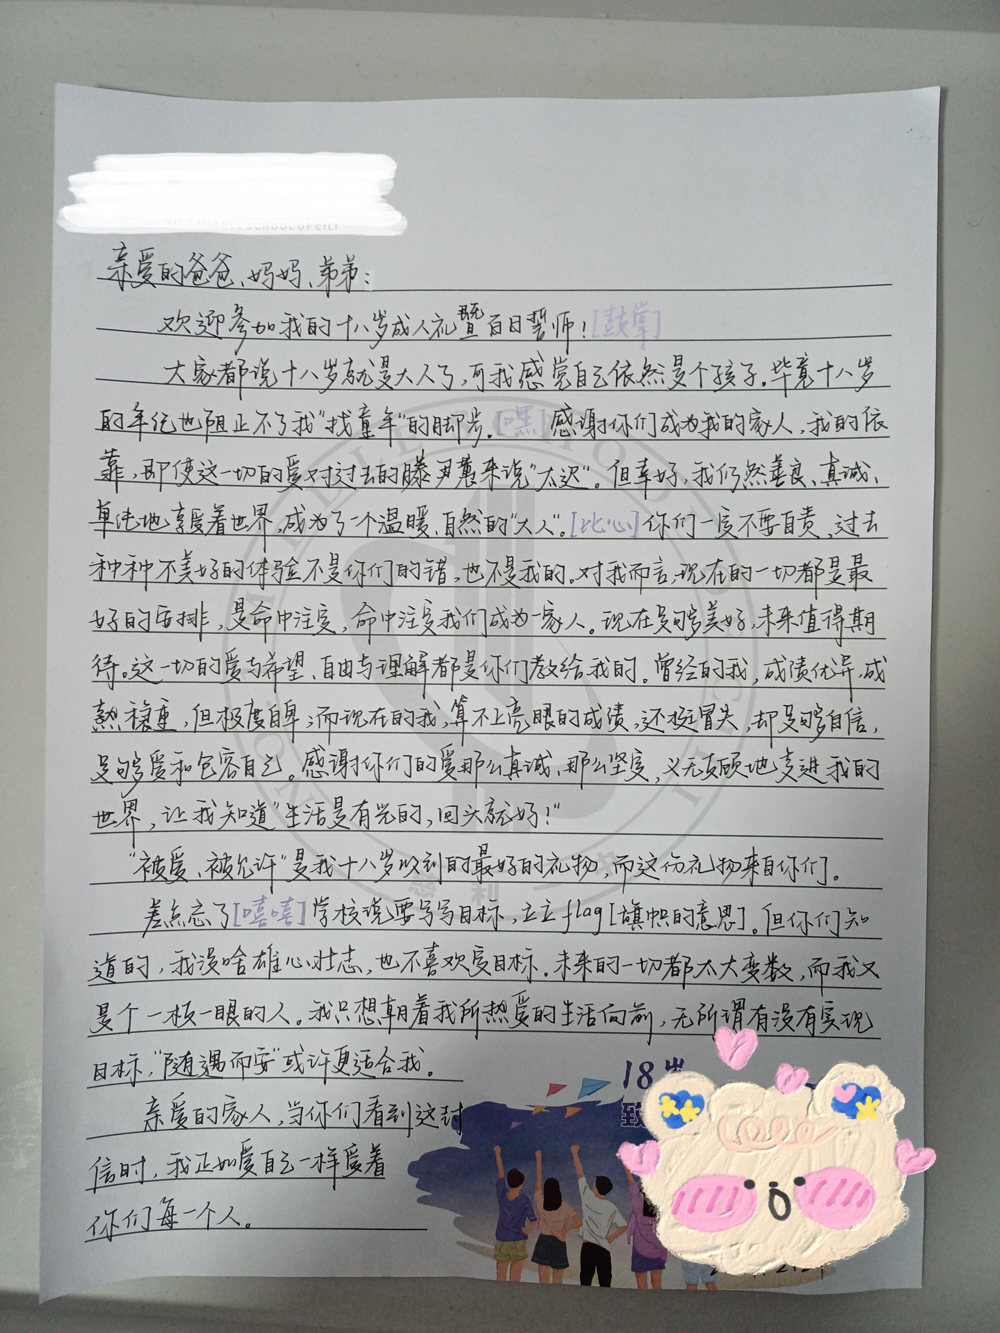 亲爱的爸爸、妈妈、弟弟：
欢迎参加我的十八岁成人礼暨百日誓师！[鼓掌]
大家都说十八岁就是大人了，可我感觉自己依然是个孩子。毕竟十八岁
的年纪也阻止不了我“找童年”的脚步。[嘿]感谢你们成为我的家人，我的依
靠，即使这一切的爱对过去的滕尹蕙来说“太迟”。但幸好，我仍然善良、真诚、
单纯地享受着世界，成为了一个温暖、自然的“大人”。[比心]你们一定不要自责，过去
种种不美好的体验不是你们的错，也不是我的。对我而言，现在的一切都是最
好的安排，是命中注定，命中注定我们成为一家人。现在足够美好，未来值得期
待。这一切的爱与希望、自由与理解都是你们教给我的。曾经的我，成绩优异，成
熟稳重，但极度自卑；而现在的我，算不上亮眼的成绩，还挺冒失，却足够自信，
足够爱和包容自己。感谢你们的爱那么真诚、那么坚定，义无反顾地走进我的
世界，让我知道“生活是有光的，回头就好！”
“被爱、被允许”是我十八岁收到的最好的礼物，而这份礼物来自你们。
差点忘了[嘻嘻]学校说要写写目标，立立flag[旗帜的意思]。但你们知
道的，我没啥雄心壮志，也不喜欢定目标。未来的一切都太大变数，而我又
是个一板一眼的人。我只想朝着我所热爱的生活向前，无所谓有没有实现
目标，“随遇而安”或许更适合我。
亲爱的家人，当你们看到这封
信时，我正如爱自己一样爱着
你们每一个人。
18岁
致